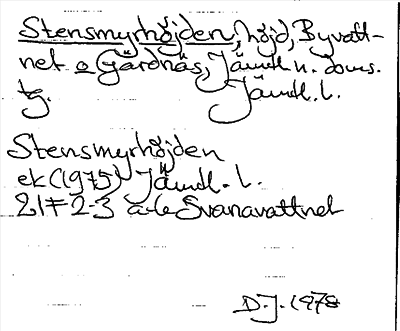 Stensmyrhöjden, höjd, Byvatt-
net o Gärdnäs, Jämtl. n. doms.
tg. Jämtl. l.
Stensmyrhöjden
ek (1975) Jämtl. l.
21F 2-3 a-e Svanavattnet
D.J. 1978